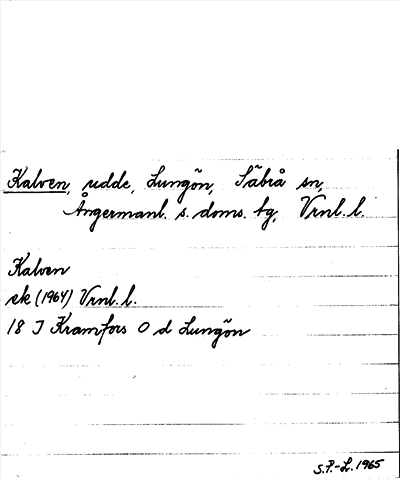 Kalven, udde, Lungön, Säbrå sn,
Ångermanl. s. doms. tg, Vrnl. l.
Kalven
ek (1964) Vrnl. l.
18 J Kramfors O d Lungön
S.P.-L. 1965